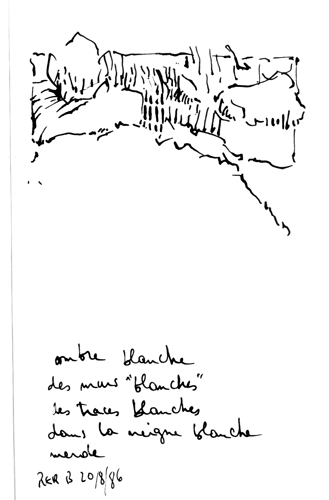 ombre blanche
des murs "blanches"
les traces blanches
dans la neigne blanche
merde
RER B 20/8/86